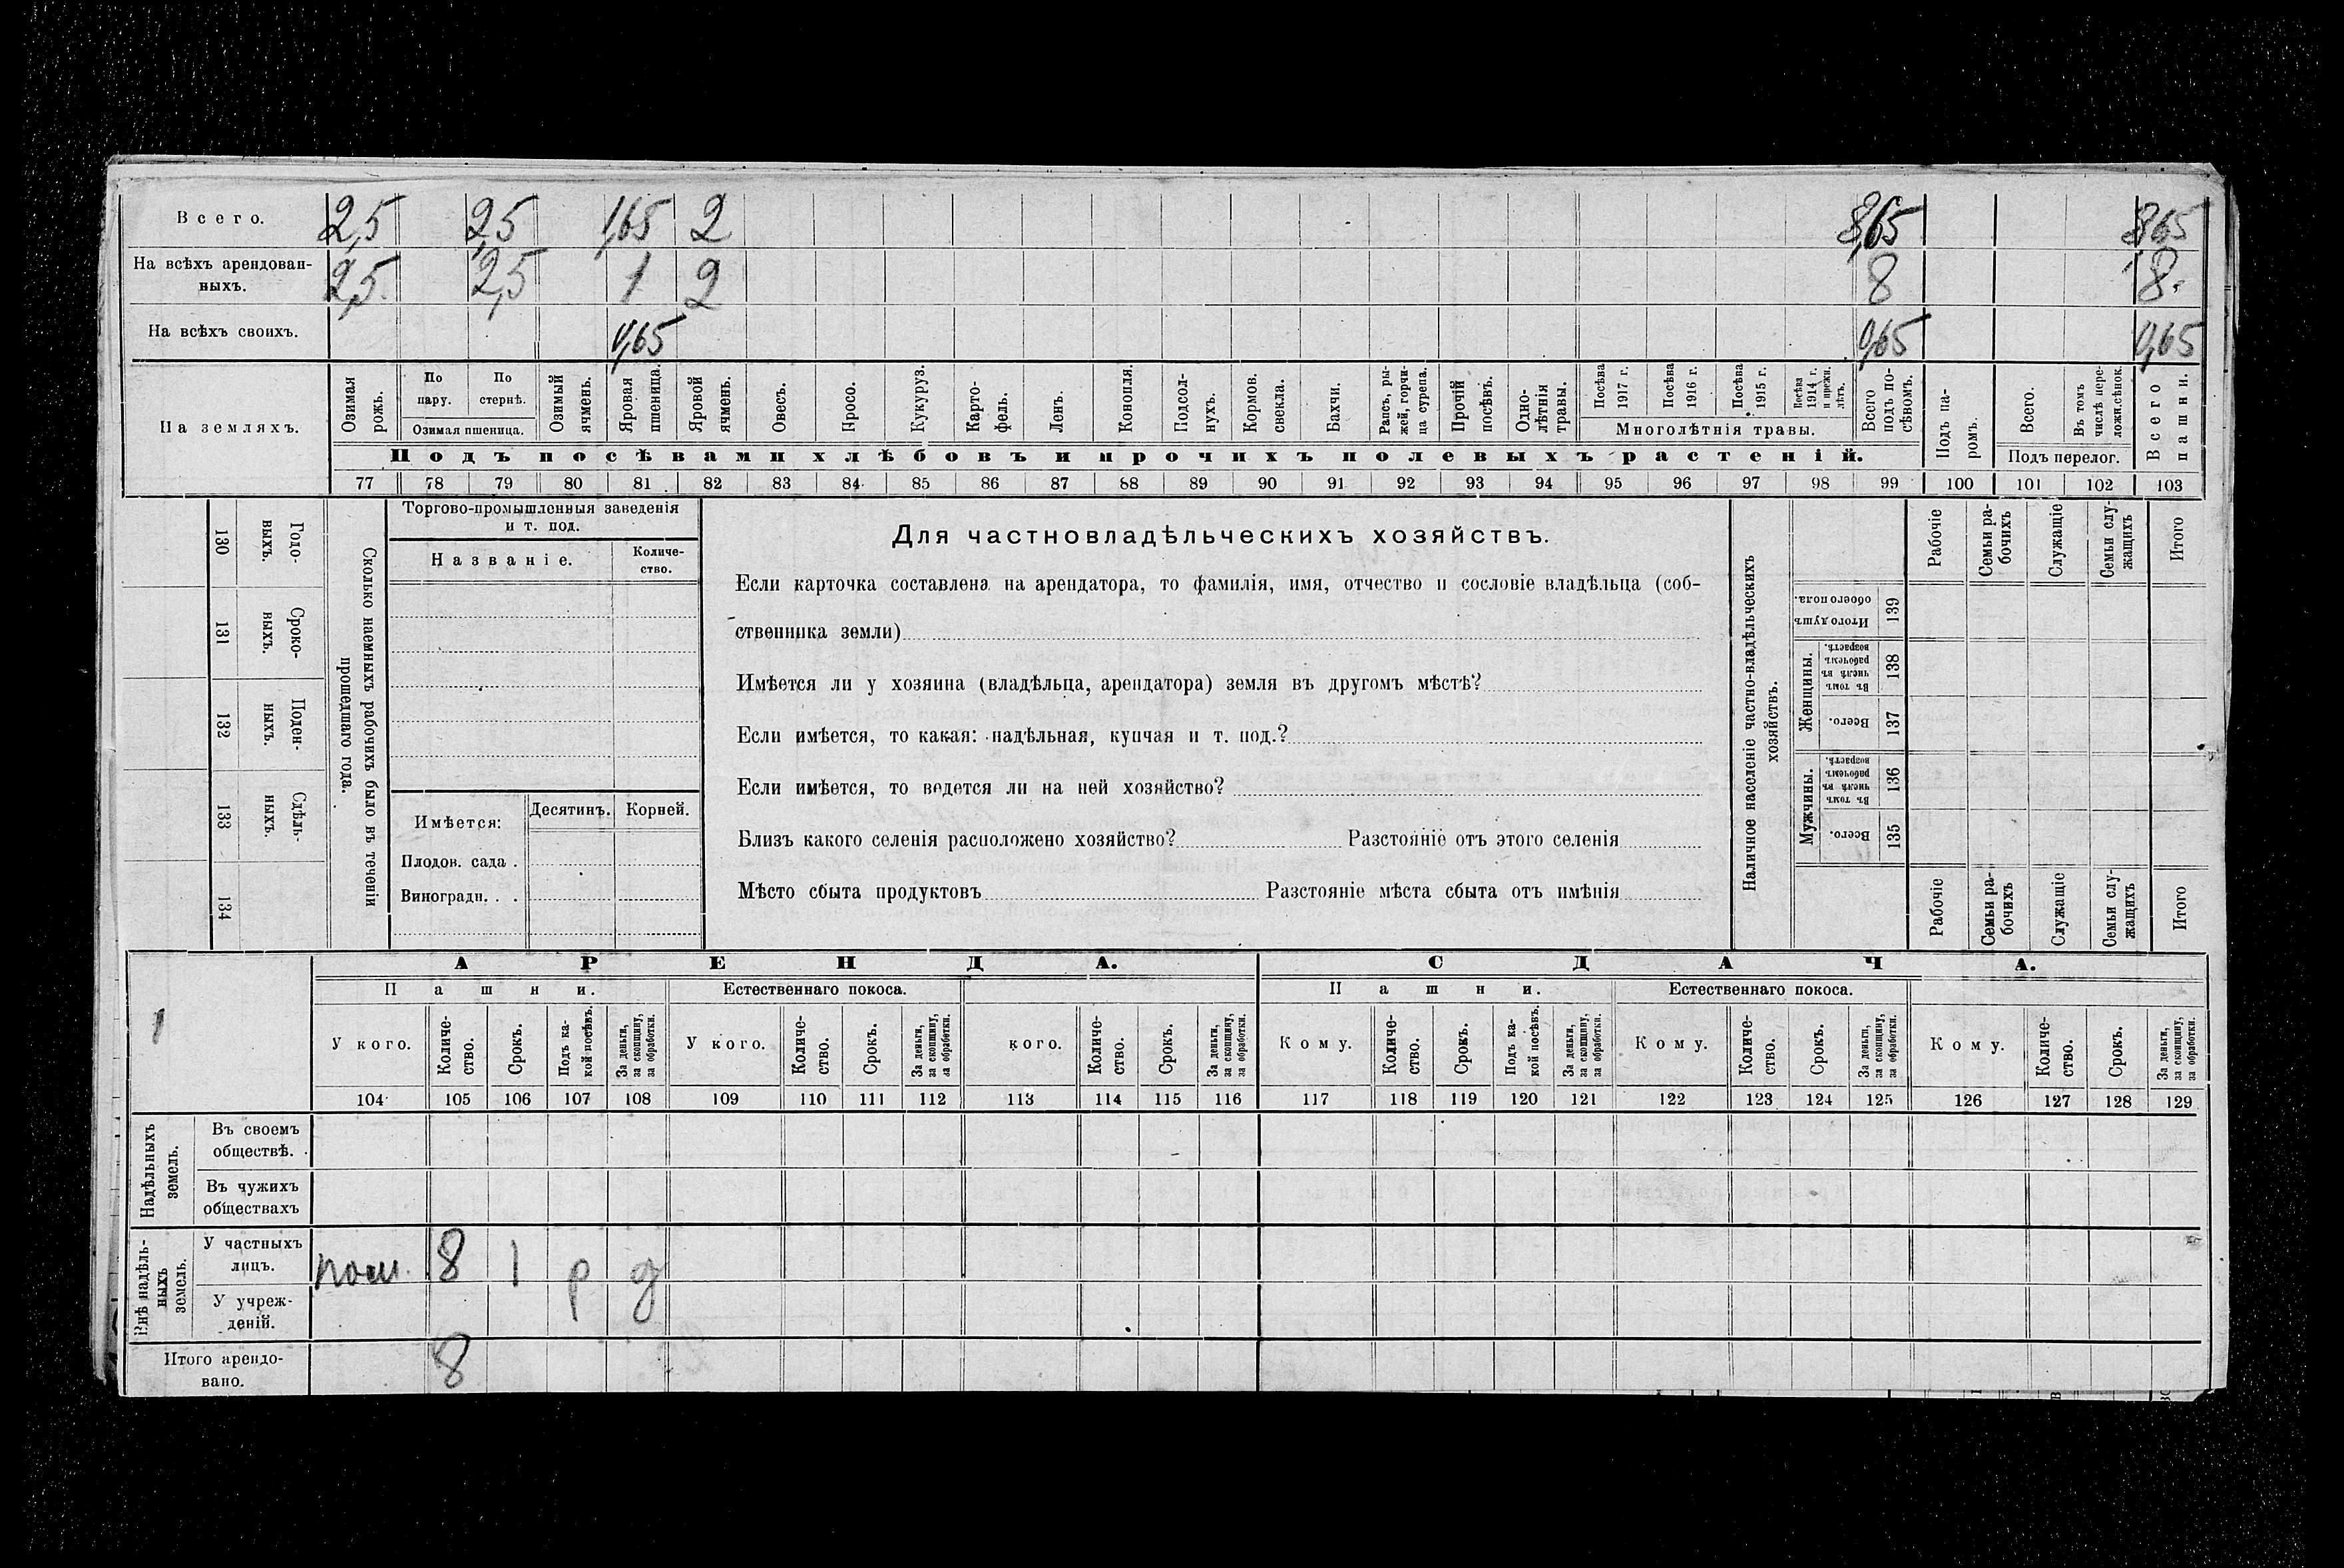 Всего. 2,5 2,5 1,65 2 8,65 8,65
На всѣхъ арендован-
ныхъ. 2,5 2,5 1 2 8 8
На всѣхъ своихъ. 0,65 0,65 0,65
На земляхъ.
Озимая рожь.
По пару.
По стернѣ.
Озимая пшеница.
Озимый ячмень.
Яровая пшеница.
Яровой ячмень.
Овесъ.
Просо.
Кукуруз.
Карто-
фель.
Ленъ.
Конопля.
Подсол-
нухъ.
Кормов.
свекла.
Бахчи.
Рапсъ, ры-
жей, горчи-
ца сурепа.
Прочій
посѣвъ.
Одно-
лѣтнія
травы.
Посѣва
1917 г.
Посѣва
1916 г.
Посѣва
1915 г.
Посѣва
1914 г.
и прежн.
лѣтъ.
Многолѣтнія травы.
Всего
подъ по-
сѣвомъ.
Подъ па-
ромъ.
Всего.
Въ томъ
числѣ пере-
ложн.сѣнок.
Подъ перелог.
Всего
пашни.
Подъ посѣвами хлѣбовъ и прочихъ полевыхъ растеній.
77 78 79 80 81 82 83 84 85 86 87 88 89 90 91 92 93 94 95 96 97 98 99 100 101 102 103
130 Годо-
выхъ.
131 Сроко-
ныхъ.
132 Поден-
ныхъ.
133 Сдѣль-
ныхъ.
134
Сколько наемныхъ рабочихъ было въ теченіи
прошедшаго года.
Торгово-промышленныя заведенія
и т. под.
Названіе.
Количе-
ство.
Имѣется: Десятинъ. Корней.
Плодов. сада .
Виноградн. . .
Для частновладѣльческихъ хозяйствъ.
Если карточка составлена на арендатора, то фамилія, имя, отчество и сословіе владѣльца (соб-
ственника земли)
Имѣется ли у хозяина (владѣльца, арендатора) земля въ другомъ мѣстѣ?
Если имѣется, то какая: надѣльная, купчая и т. под.?
Если имѣется, то ведется ли на ней хозяйство?
Близъ какого селенія расположено хозяйство? Разстояніе отъ этого селенія
Мѣсто сбыта продуктовъ Разстояніе мѣста сбыта отъ имѣнія
Наличное населеніе частно-владѣльческихъ
хозяйствъ.
Рабочіе
Семьи ра-
бочихъ
Служащіе
Семьи слу-
жащихъ
Итого
Итого душъ
обоего пола.
139
Женщины.
Въ томъ
числѣ въ
рабочемъ
возрастѣ.
138
Всего.
137
Мужчины.
Въ томъ
числѣ въ
рабочемъ
возрастѣ.
136
Всего.
135
Рабочіе
Семьи ра-
бочихъ
Служащіе
Семьи слу-
жащихъ
Итого
АРЕНДА. СДАЧА.
Пашни. Естественнаго покоса. Пашни. Естественнаго покоса.
1
У кого.
Количе-
ство.
Срокъ.
Подъ ка-
кой посѣвъ.
За деньги,
за скопщину,
за обработки.
У кого.
Количе-
ство.
Срокъ.
За деньги,
за скопщину,
за обработки.
кого.
Количе-
ство.
Срокъ.
За деньги,
за скопщину,
за обработки.
Кому.
Количе-
ство.
Срокъ.
Подъ ка-
кой посѣвъ.
За деньги,
за скопщину,
за обработки.
Кому.
Количе-
ство.
Срокъ.
За деньги,
за скопщину,
за обработки.
Кому.
Количе-
ство.
Срокъ.
За деньги,
за скопщину,
за обработки.
104 105 106 107 108 109 110 111 112 113 114 115 116 117 118 119 120 121 122 123 124 125 126 127 128 129
Надѣльныхъ
земель.
Въ своемъ
обществѣ.
Въ чужихъ
обществахъ
Внѣ надѣль-
ныхъ
земель.
У частныхъ
лицъ. пом. 8 1 р д
У учреж-
деній.
Итого арендо-
вано. 8